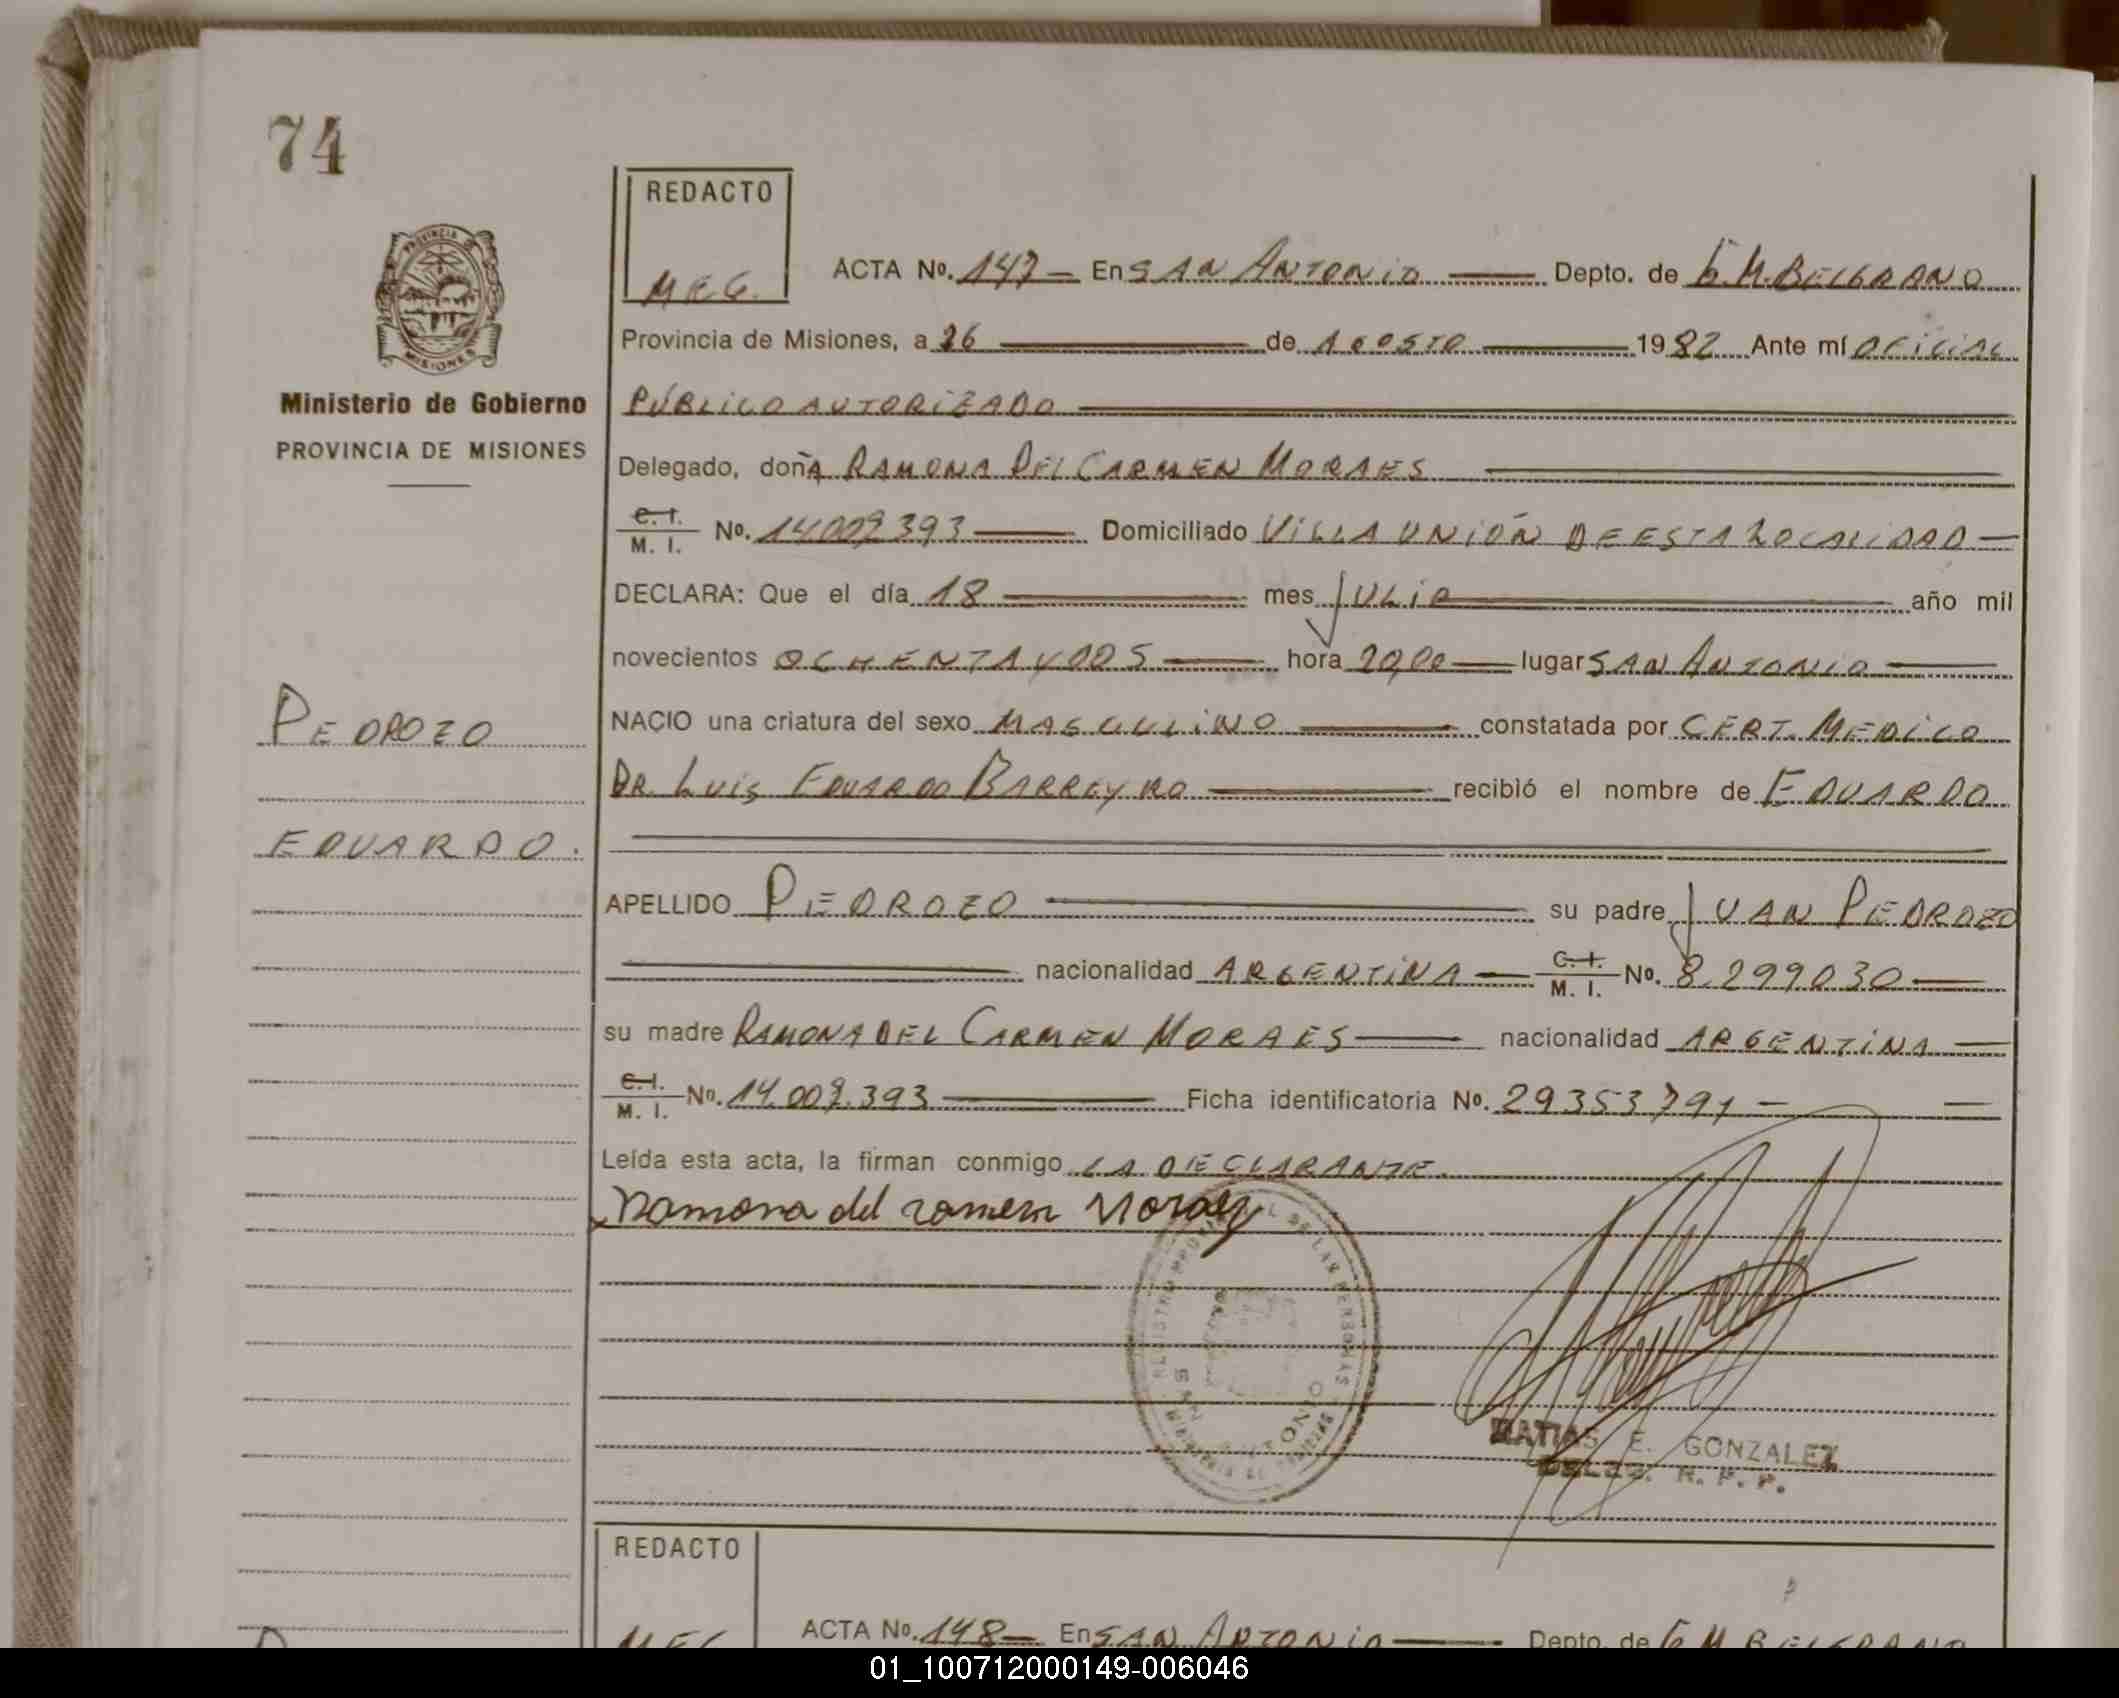 74
REDACTO
M E G.
ACTA No. 147 En SAN ANTONIO Depto. de G. M. BELGRANO
Provincia de Misiones, a 26 de AGOSTO 1982 Ante mí OFICIAL
PÚBLICO AUTORIZADO
PROVINCIA DE
MISIONES
Ministerio de Gobierno
PROVINCIA DE MISIONES
Delegado, doñA RAMONA DEL CARMEN MORAES
C. I.
M. I. No. 14.009.393 Domiciliado VILLA UNIÓN DE ESTA LOCALIDAD
DECLARA: Que el día 18 mes JULIO año mil
novecientos OCHENTA Y DOS hora 20,00 lugar SAN ANTONIO
PEDROZO
EDUARDO.
NACIO una criatura del sexo MASCULINO constatada por CERT. MEDICO
DR. LUIS EDUARDO BARREYRO recibió el nombre de EDUARDO
APELLIDO PEDROZO su padre JUAN PEDROZO
nacionalidad ARGENTINA C. I.
M. I. No. 8.299030
su madre RAMONA DEL CARMEN MORAES nacionalidad ARGENTINA
C. I.
M. I. No. 14.009.393 Ficha identificatoria No. 29353791
Leída esta acta, la firman conmigo LA DECLARANTE.
Ramona del carmen Moraez
REGISTRO PROVINCIAL DE LAS PERSONAS
SAN ANTONIO
MATIAS E. GONZALEZ
DELEG. R. P. P.
REDACTO
MEG
ACTA No. 148 En SAN ANTONIO Depto. de G M BELGRANO
01_100712000149-006046